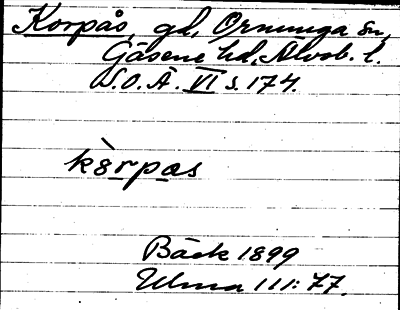 Korpås, gd, Ornunga sn,
Gäsene hd, Älvsb. l.
S.O.Ä. VI s. 174.
kòrpas
Bäck 1899
Ulma 111:77.